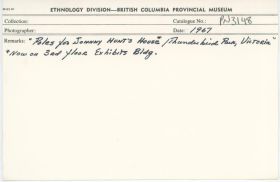 ETHNOLOGY DIVISION—BRITISH COLUMBIA PROVINCIAL MUSEUM
Collection: Catalogue No.: PN3148
Photographer: Date: 1967
Remarks: "Poles for Johnny Hunt's House" Thunderbird Park, Victoria"
"Now on 3rd floor Exhibits Bldg.